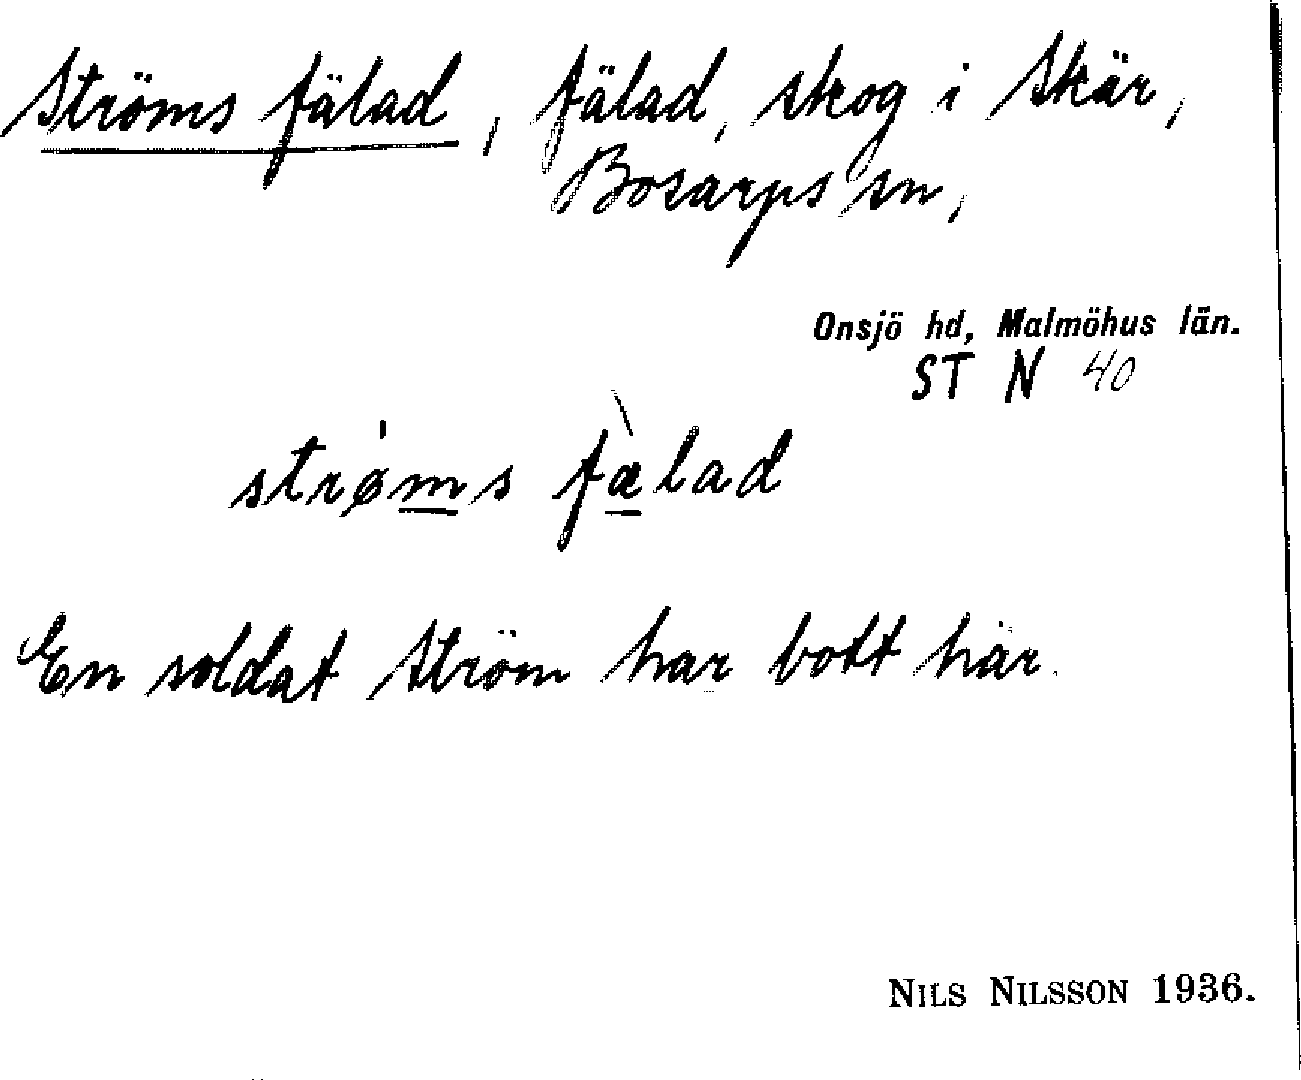 Ströms fälad, fälad, skog i Skär,
Bosarps sn,
Onsjö hd, Malmöhus län.
ST N 40
strø̍ms fæ̀lad
En soldat Ström har bott här.
NILS NILSSON 1936.